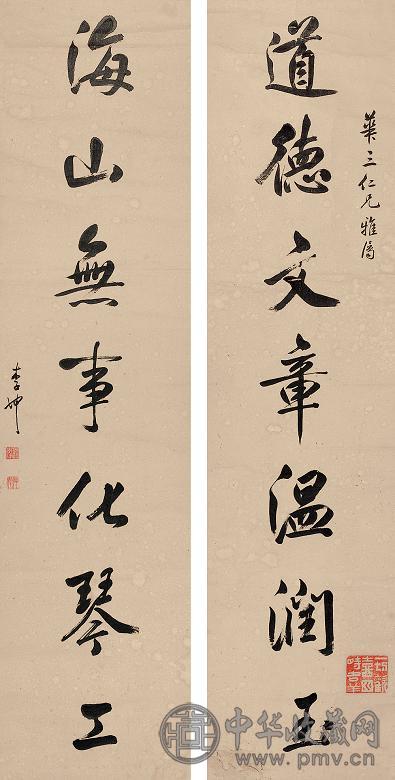 道德文章温润玉
華三仁兄雅属
海山無事化琴工
李坤
中华收藏网
www.pmv.cn